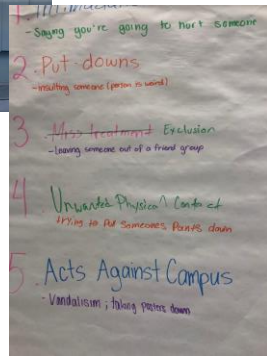 1.
- Saying you're going to hurt someone
2. Put downs
- insulting someone (person is weird)
3 Miss treatment Exclusion
- Leaving someone out of a friend group
4. Unwanted Physical Contact
trying to put someones Pants down
5. Acts Against Campus
- Vandalisim ; taking posters down